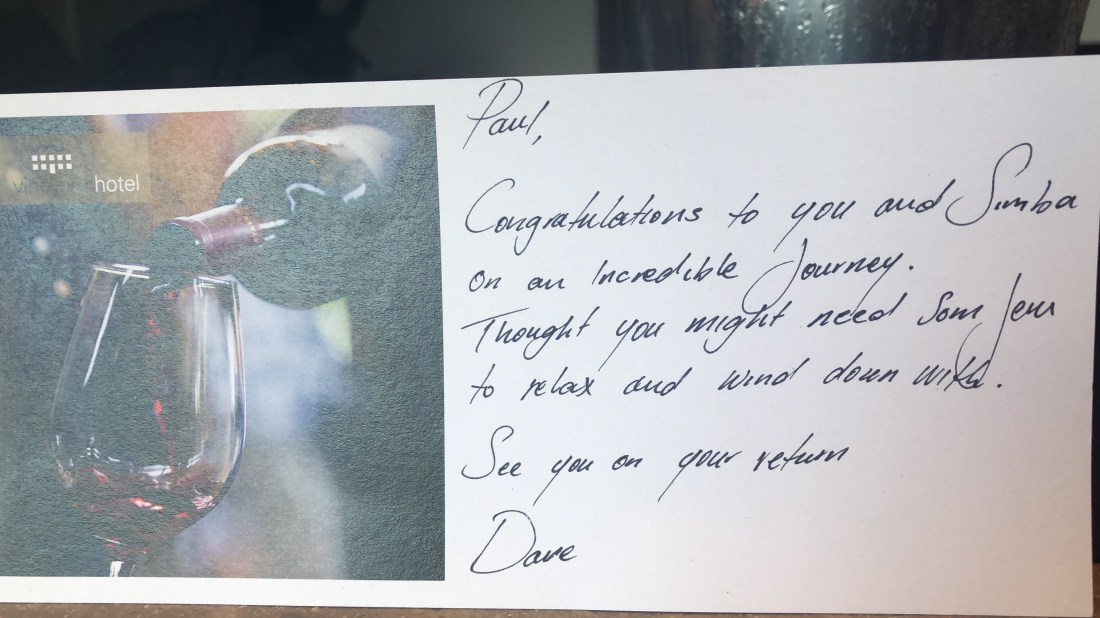 hotel
Paul,
Congratulations to you and Simba
on an Incredible Journey.
Thought you might need Som
to relax and wind down with.
See you on your return
Dave